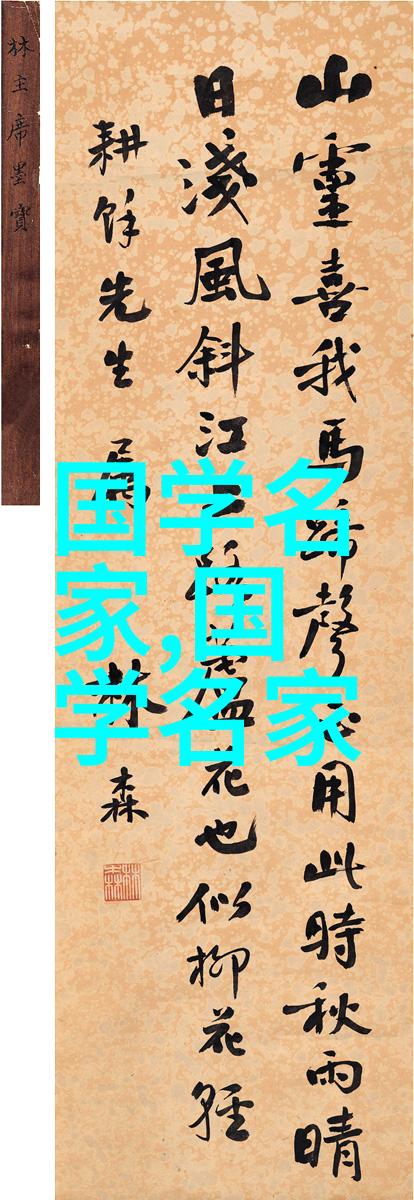 山靈喜我馬蹄聲用此時秋雨晴
日淺風斜江路蘆花也似柳花輕
耕餘先生屬
林森
林森
林主席墨寶
国学名
家,国
学名家